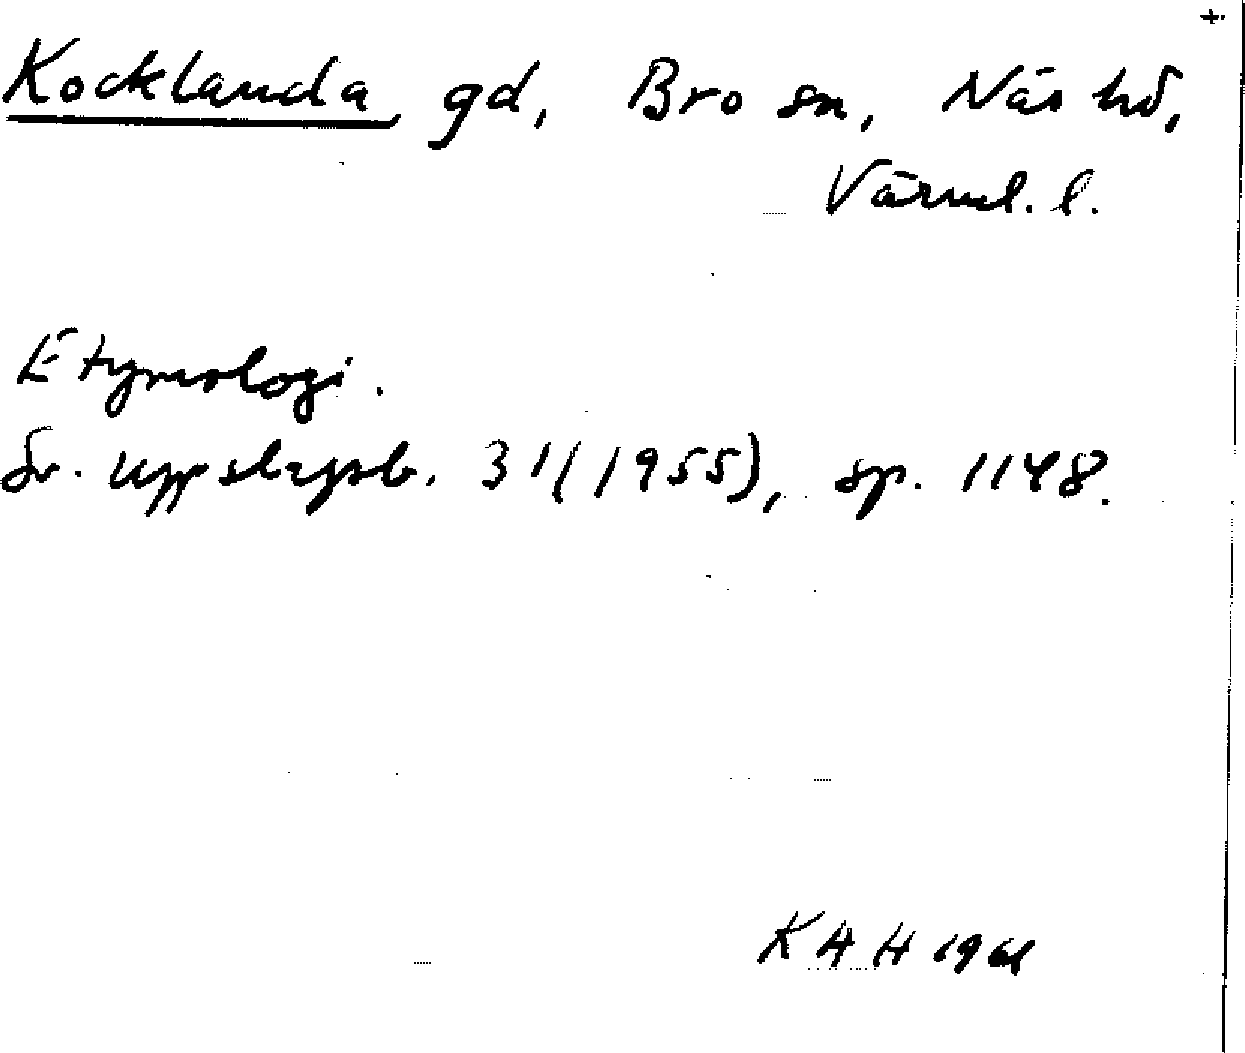 +.
Kocklanda gd, Bro sn, Näs hd,
Värml. l.
Etymologi.
Sv. uppslagsb. 31 (1955), sp. 1148.
KAH 1961